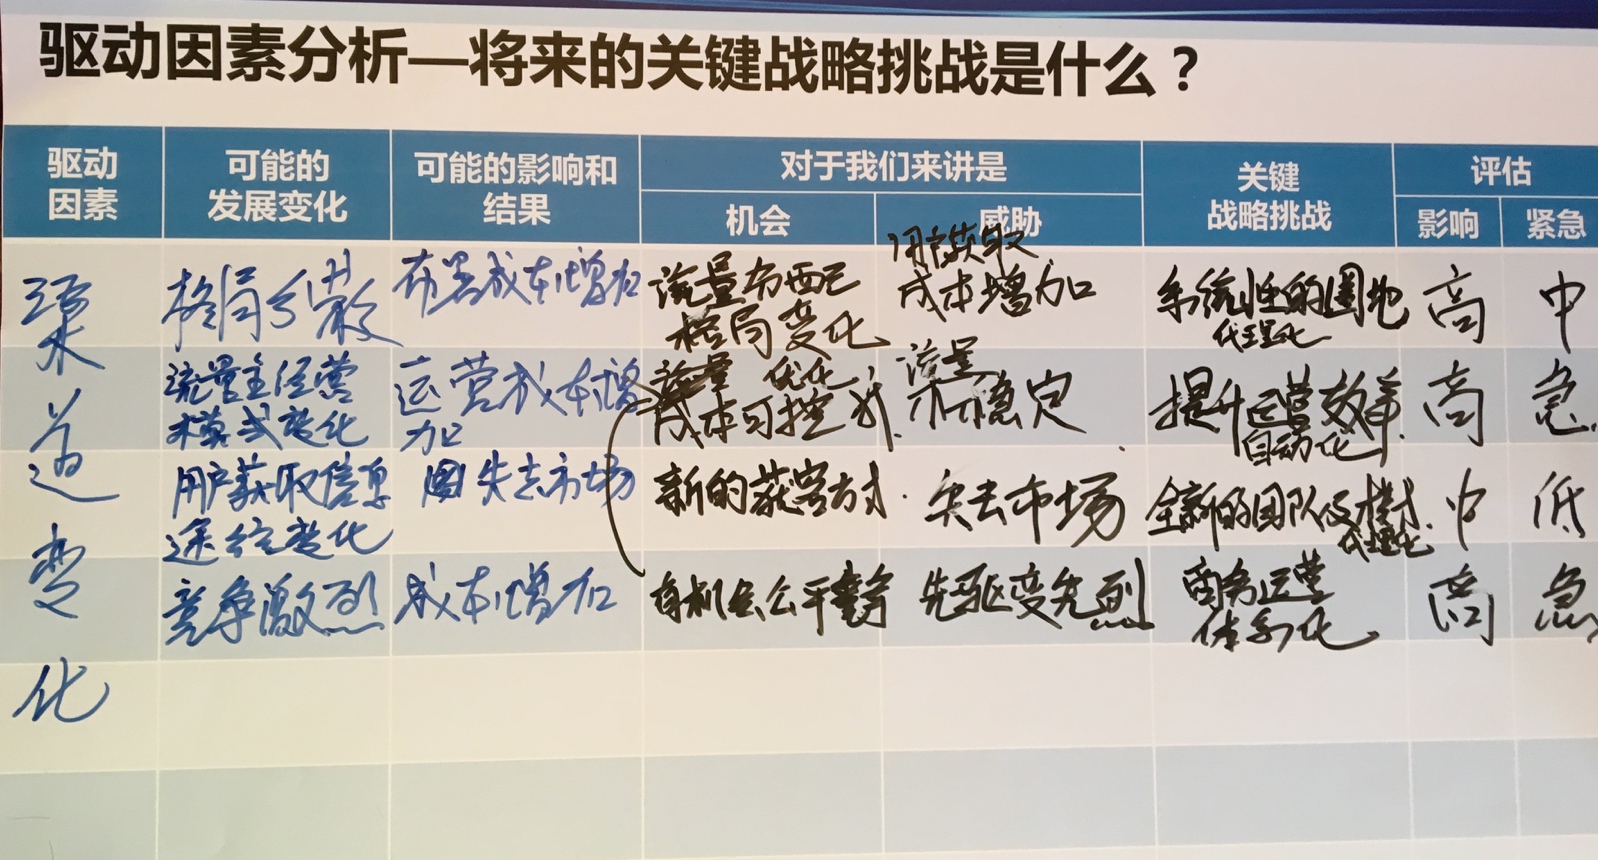 驱动因素分析—将来的关键战略挑战是什么？
驱动
因素
可能的
发展变化
可能的影响和
结果
对于我们来讲是
机会
威胁
关键
战略挑战
评估
影响
紧急
渠
道
变
化
格局分散
布署成本增加
流量布西已
格局变化
用户获取
成本增加
系统性的圈地
代理化
高
中
流量主经营
模式变化
运营成本增
加
流量 优化
成本可控
流量
不稳定
提升运营效率
自动化
高
急
用户获取信息
途径变化
失去市场
新的获客方式
失去市场
全新的团队及模式
代理化
中
低
竞争激烈
成本增加
有机会公平竞争
先驱变先烈
商务运营
体系化
高
急